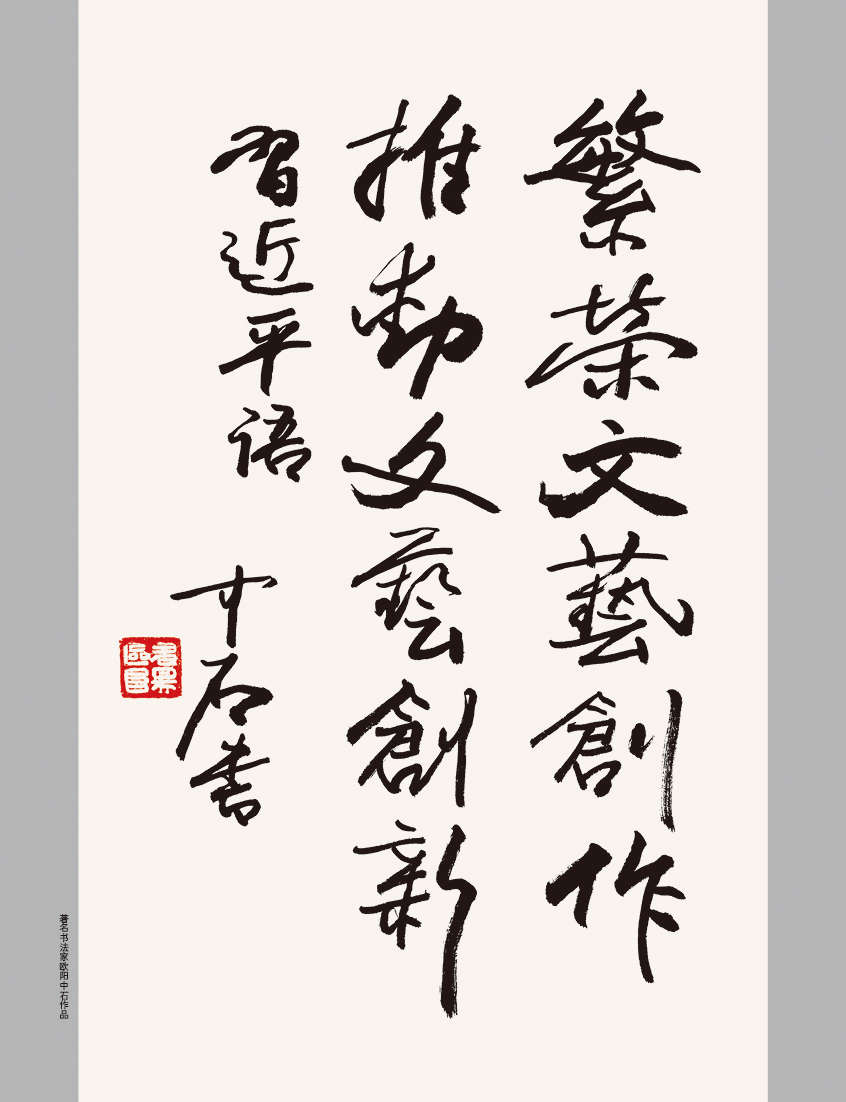 繁榮文藝創作
推動文藝創新
習近平语
中石书
著名书法家欧阳中石作品